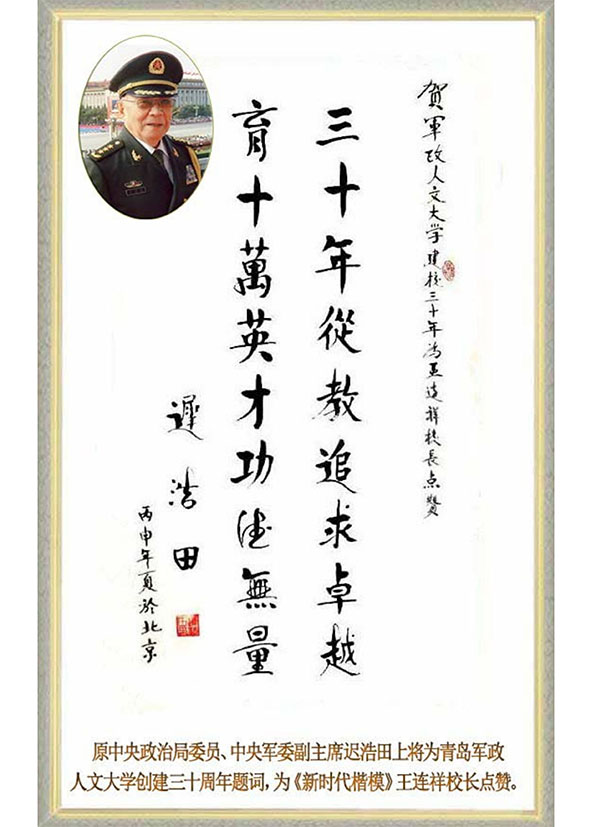 賀軍政人文大学建校三十年為王连祥校長点贊
三十年從教追求卓越
育十萬英才功德無量
遲浩田
丙申年夏於北京
原中央政治局委员、中央军委副主席迟浩田上将为青岛军政
人文大学创建三十周年题词，为《新时代楷模》王连祥校长点赞。